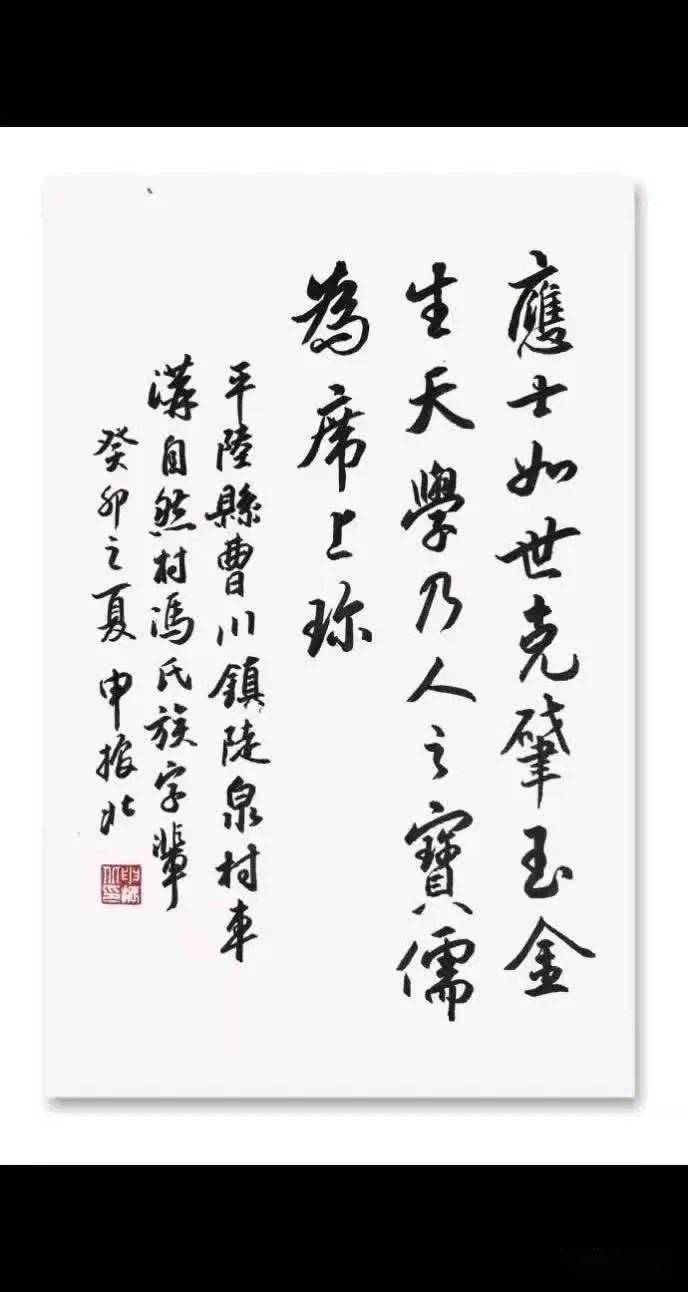 應士如世克肈玉金
生天學乃人之寶儒
為席上珎
平陸縣曹川鎮陡泉村車
溝自然村馮氏族字輩
癸卯之夏 申振北